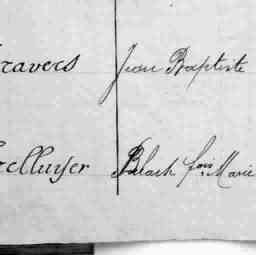 ravers Jean Baptiste
elluyer Black fois Marie